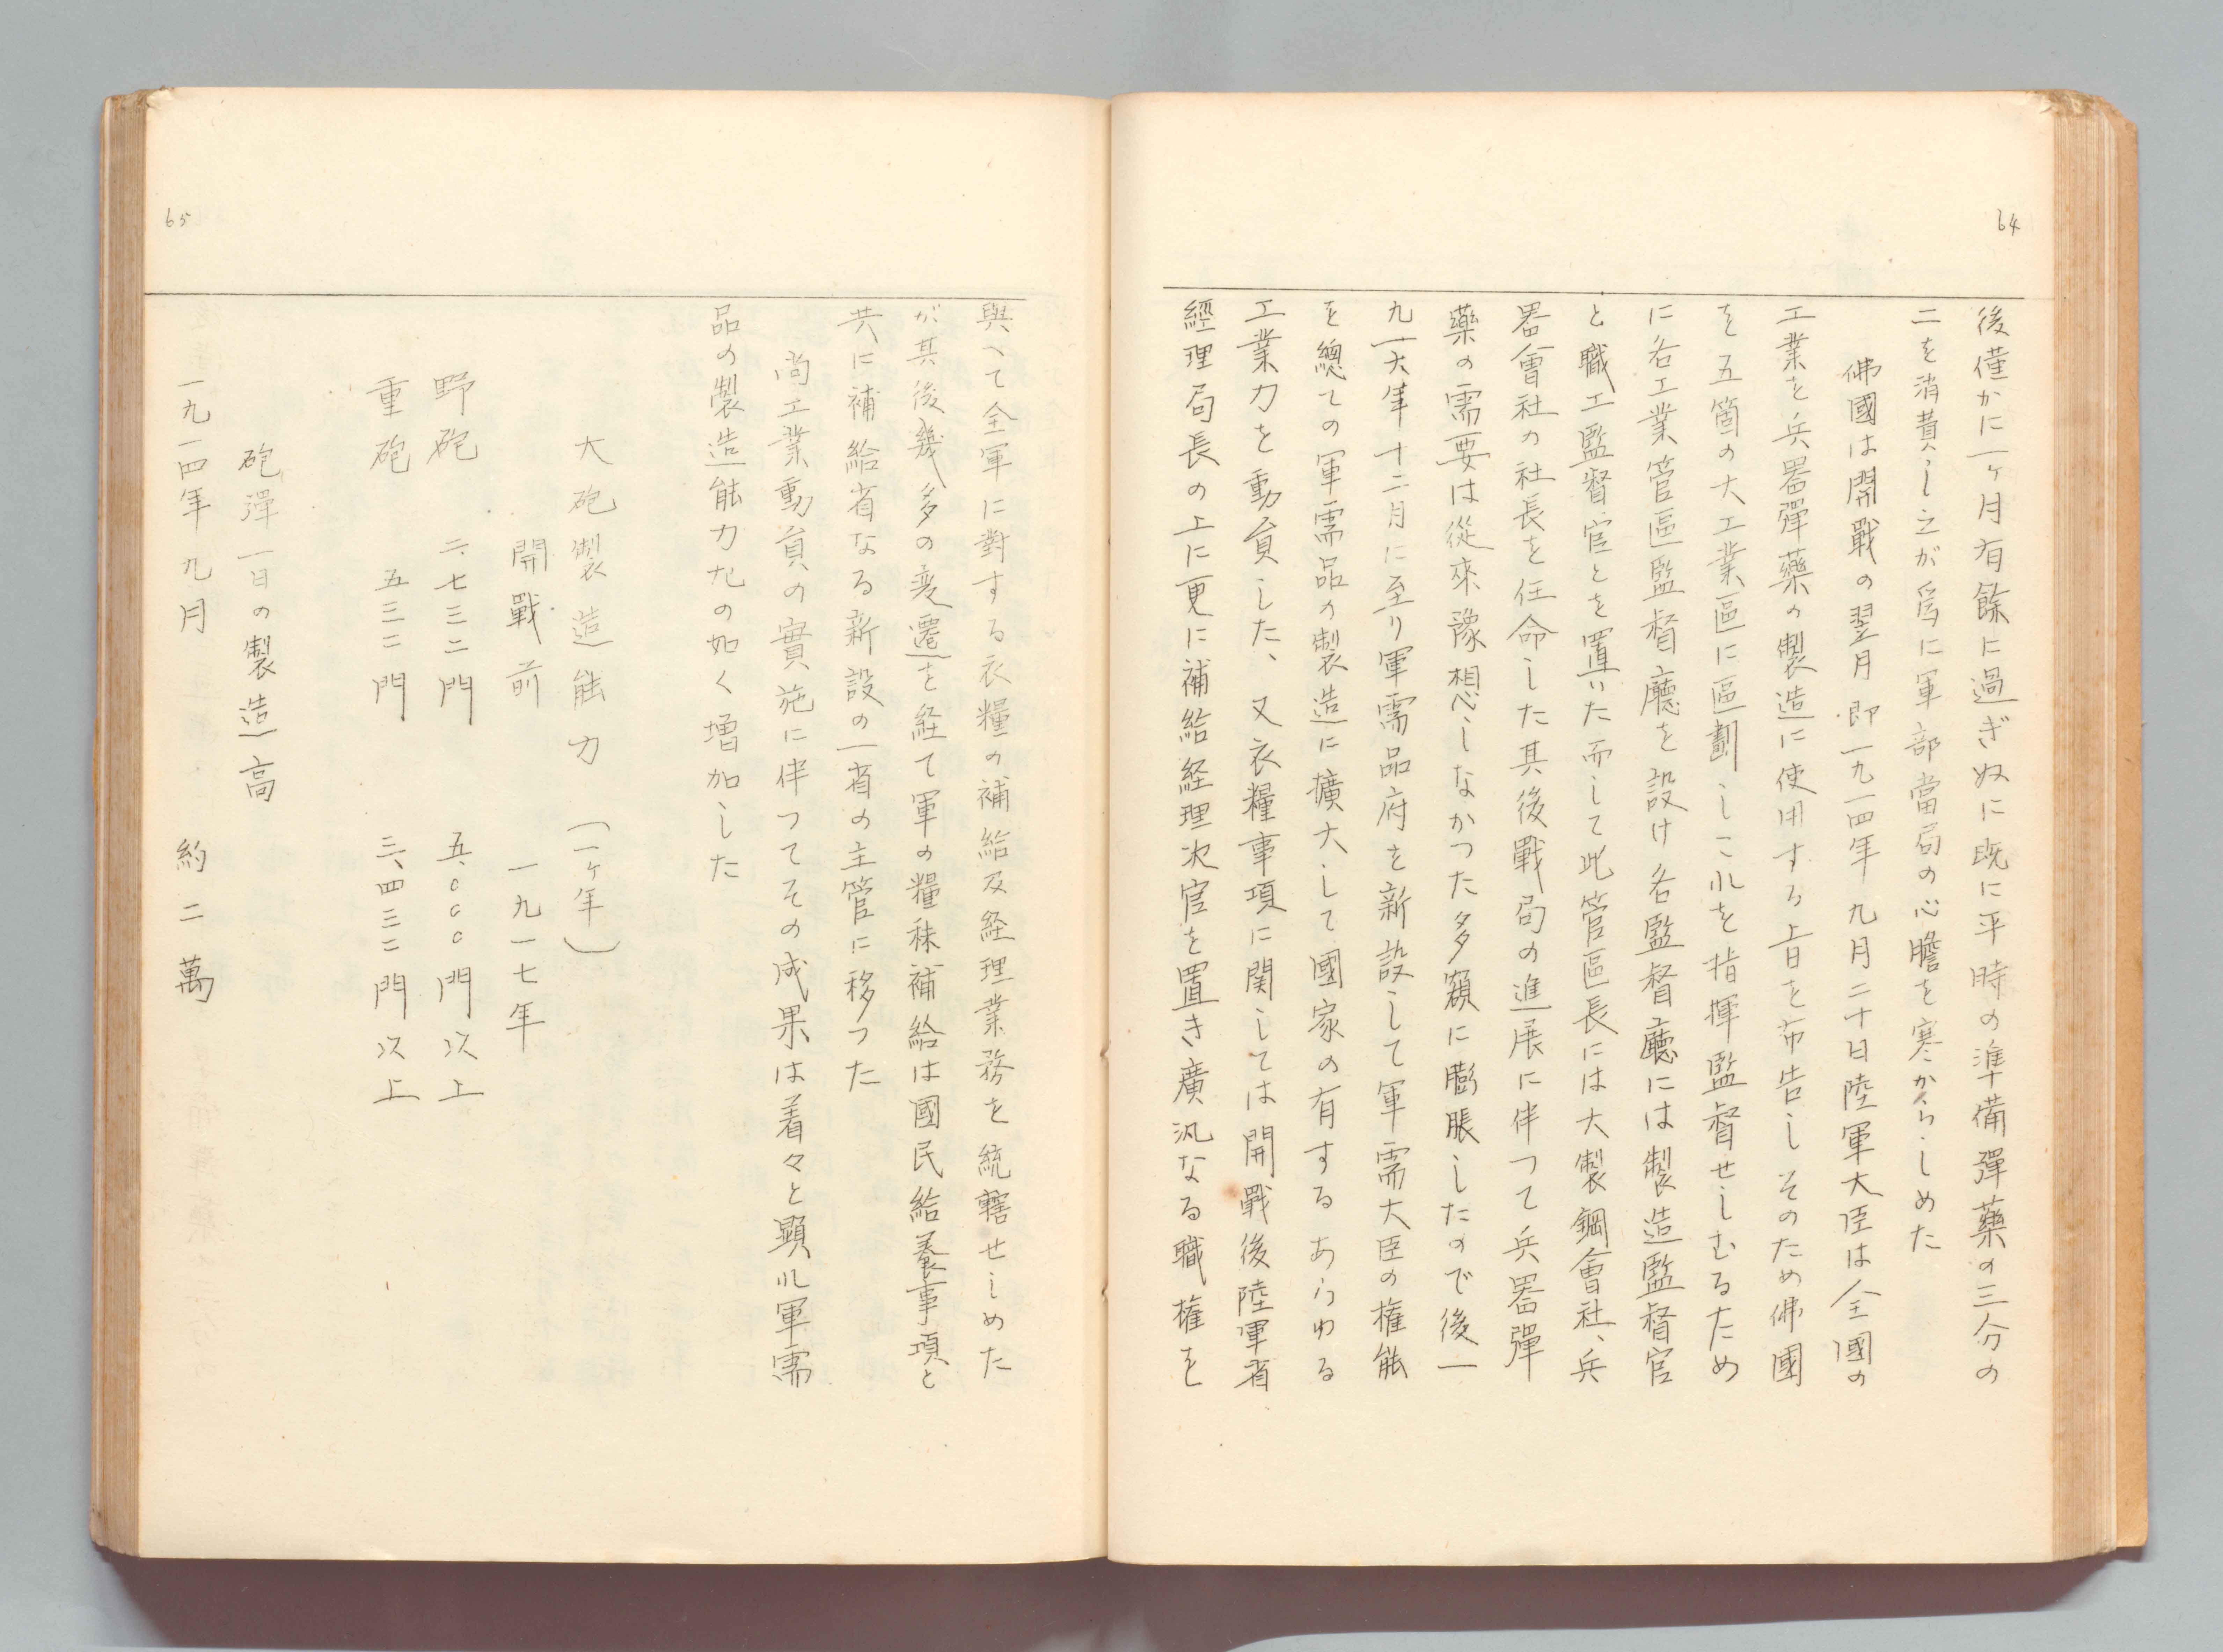 64
後僅かに一ヶ月有餘に過ぎぬに既に平時の準備彈藥の三分の
二を消費し之が爲に軍部當局の心膽を寒からしめた
佛國は開戰の翌月即一九一四年九月二十日陸軍大臣は全國の
工業を兵器彈藥の製造に使用する旨を布告しそのため佛國
を五箇の大工業區に區劃しこれを指揮監督せしむるため
に各工業管區監督廳を設け各監督廳には製造監督官
と職工監督官とを置いた而して此管區長には大製鋼會社、兵
器會社の社長を任命した其後戰局の進展に伴つて兵器彈
藥の需要は從來豫想しなかつた多額に膨脹したので後一
九一六年十二月に至り軍需品府を新設して軍需大臣の権能
を總ての軍需品の製造に擴大して國家の有するあらゆる
工業力を動員した、又衣糧事項に関しては開戰後陸軍省、
經理局長の上に更に補給経理次官を置き廣汎なる職権を
65
與へて全軍に對する衣糧の補給及経理業務を統轄せしめた
が其後幾多の変遷を経て軍の糧秣補給は國民給養事項と
共に補給省なる新設の一省の主管に移つた
尚工業動員の實施に伴つてその成果は着々と顕れ軍需
品の製造能力左の如く増加した
大砲製造能力(一ヶ年)
開戰前 一九一七年
野砲 二、七三二門 五、〇〇〇門以上
重砲 五三二門 三、四三二門以上
砲彈一日の製造高
一九一四年九月 約二萬